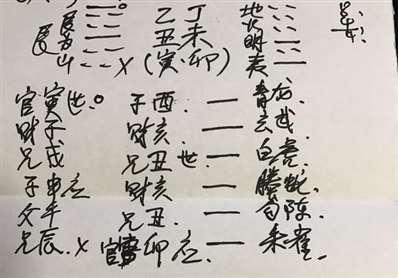 艮为山
乙丁
丑未
(寅·卯)
地火明夷
官寅世。 子酉. 青龙
财子 财亥 玄武.
兄戌 兄丑世. 白虎.
子申应 财亥 螣蛇.
父午 兄丑. 勾陈.
兄辰. x 官卯应. 朱雀.